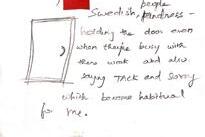 people
Swedish, kindness
holding the door even
when theyre busy with
there work and also
saying TACK and Sorry
which become habitual
for me.